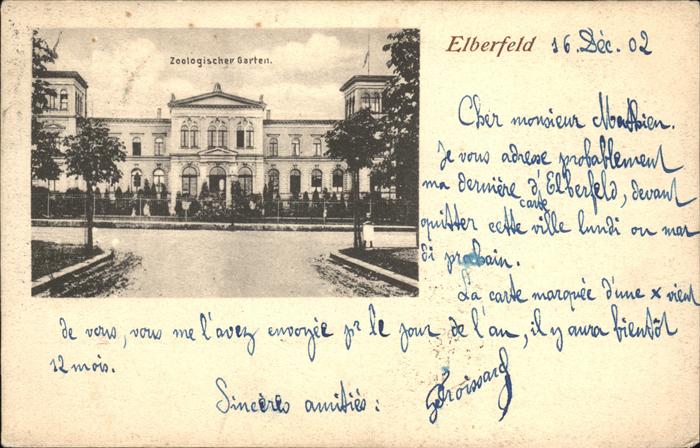 Zoologischer Garten.
Elberfeld 16. Déc. 02
Cher monsieur Mathien.
Je vous adresse probablement
ma dernière carte d'Elberfeld, devant
quitter cette ville lundi ou mar
di prochain.
La carte marquée d'une x vient
de vous, vous me l'avez envoyée pr le jour de l'an, il y aura bientôt
12 mois.
Sincères amitiés :
Froissard